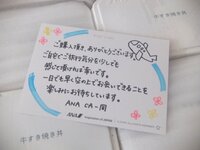 ご購入頂き、ありがとうございます
ご自宅でご旅行気分を少しでも
感じて頂ければ幸いです。
一日でも早く空の上でお会いできることを
楽しみにお待ちしています。
ANA CA一同
ANA
牛すき焼き丼
牛すき焼き丼